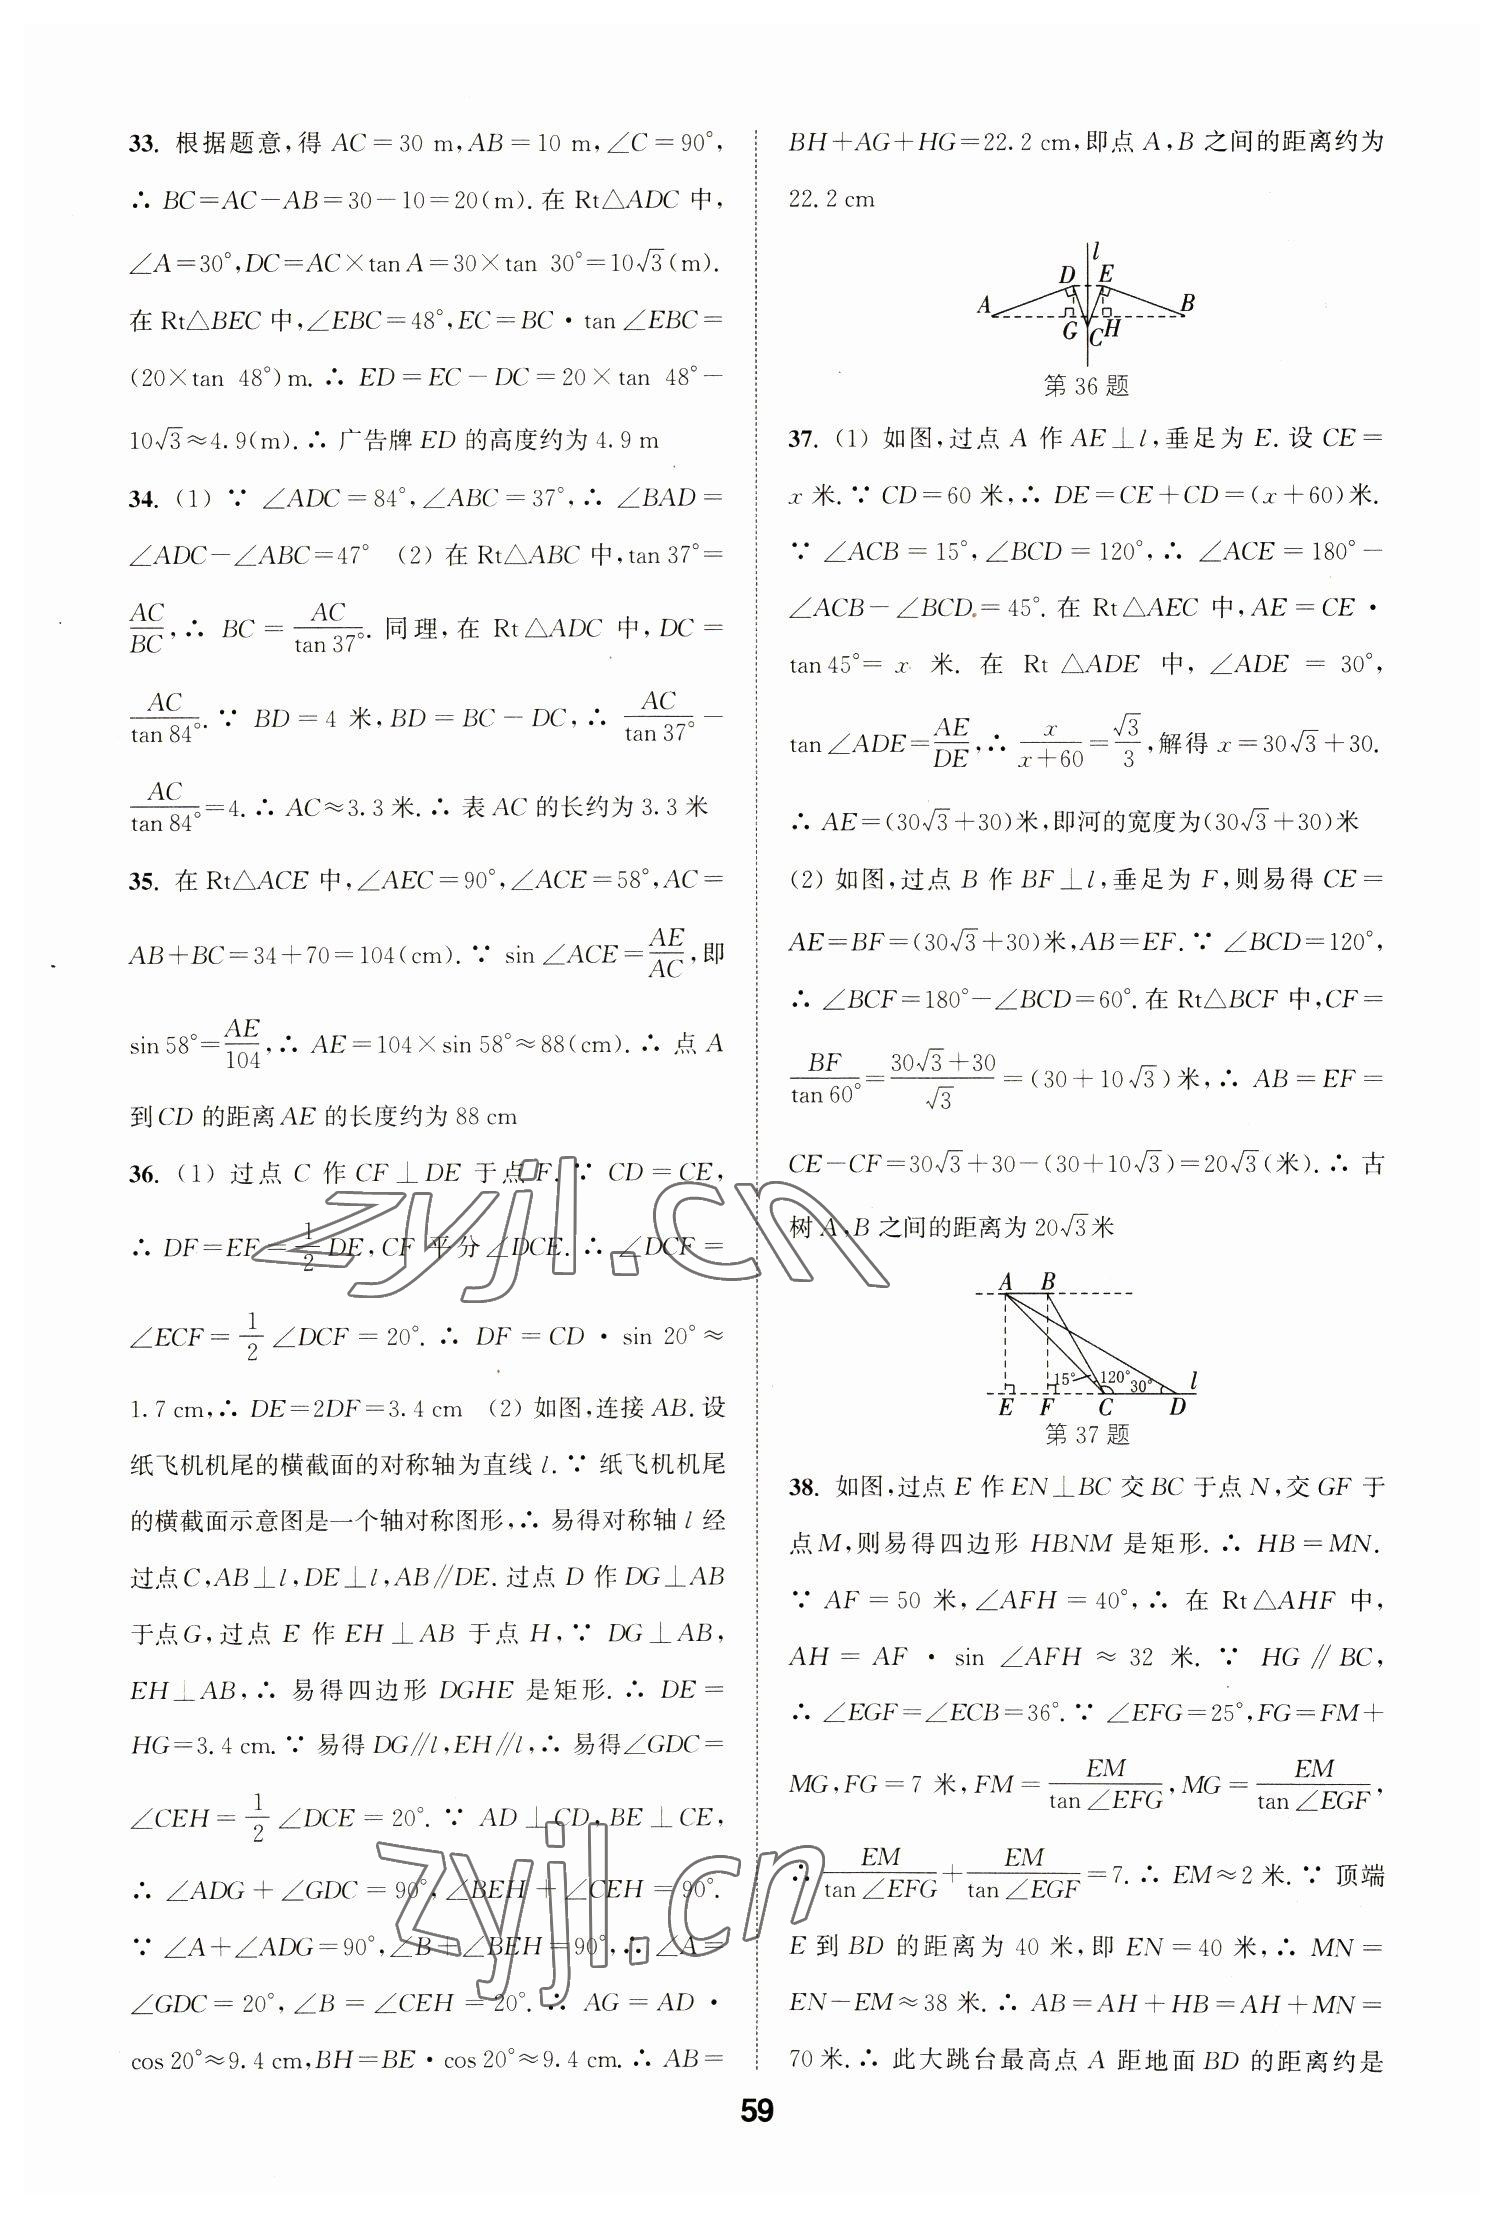 33. 根据题意,得 AC=30 m,AB=10 m,∠C=90°,
∴ BC=AC-AB=30-10=20(m). 在 Rt△ADC 中,
∠A=30°,DC=AC×tan A=30×tan 30°=10√3(m).
在 Rt△BEC 中,∠EBC=48°,EC=BC·tan∠EBC=
(20×tan 48°)m. ∴ ED=EC-DC=20×tan 48°-
10√3≈4.9(m). ∴ 广告牌 ED 的高度约为 4.9 m
34. (1) ∵ ∠ADC=84°,∠ABC=37°,∴ ∠BAD=
∠ADC-∠ABC=47° (2) 在 Rt△ABC 中,tan 37°=
AC/BC,∴ BC=AC/tan 37°. 同理,在 Rt△ADC 中,DC=
AC/tan 84°. ∵ BD=4 米,BD=BC-DC,∴ AC/tan 37°-
AC/tan 84°=4. ∴ AC≈3.3 米. ∴ 表 AC 的长约为 3.3 米
35. 在 Rt△ACE 中,∠AEC=90°,∠ACE=58°,AC=
AB+BC=34+70=104(cm). ∵ sin∠ACE=AE/AC,即
sin 58°=AE/104,∴ AE=104×sin 58°≈88(cm). ∴ 点 A
到 CD 的距离 AE 的长度约为 88 cm
36. (1) 过点 C 作 CF⊥DE 于点 F. ∵ CD=CE,
∴ DF=EF=1/2 DE,CF 平分∠DCE. ∴ ∠DCF=
∠ECF=1/2∠DCF=20°. ∴ DF=CD·sin 20°≈
1.7 cm,∴ DE=2DF=3.4 cm (2) 如图,连接 AB. 设
纸飞机机尾的横截面的对称轴为直线 l. ∵ 纸飞机机尾
的横截面示意图是一个轴对称图形,∴ 易得对称轴 l 经
过点C,AB⊥l,DE⊥l,AB∥DE. 过点 D 作 DG⊥AB
于点G,过点 E 作 EH⊥AB 于点 H,∵ DG⊥AB,
EH⊥AB,∴ 易得四边形 DGHE 是矩形. ∴ DE=
HG=3.4 cm. ∵ 易得 DG∥l,EH∥l,∴ 易得∠GDC=
∠CEH=1/2∠DCE=20°. ∵ AD⊥CD,BE⊥CE,
∴ ∠ADG+∠GDC=90°,∠BEH+∠CEH=90°.
∵ ∠A+∠ADG=90°,∠B+∠BEH=90°,∴ ∠A=
∠GDC=20°,∠B=∠CEH=20°. ∴ AG=AD·
cos 20°≈9.4 cm,BH=BE·cos 20°≈9.4 cm. ∴ AB=
BH+AG+HG=22.2 cm,即点 A,B 之间的距离约为
22.2 cm
l
D E
A B
G C H
第 36 题
37. (1) 如图,过点 A 作 AE⊥l,垂足为 E. 设 CE=
x 米. ∵ CD=60 米,∴ DE=CE+CD=(x+60)米.
∵ ∠ACB=15°,∠BCD=120°,∴ ∠ACE=180°-
∠ACB-∠BCD=45°. 在 Rt△AEC 中,AE=CE·
tan 45°=x 米. 在 Rt△ADE 中,∠ADE=30°,
tan∠ADE=AE/DE,∴ x/(x+60)=√3/3,解得 x=30√3+30.
∴ AE=(30√3+30)米,即河的宽度为(30√3+30)米
(2) 如图,过点 B 作 BF⊥l,垂足为 F,则易得 CE=
AE=BF=(30√3+30)米,AB=EF. ∵ ∠BCD=120°,
∴ ∠BCF=180°-∠BCD=60°. 在 Rt△BCF 中,CF=
BF/tan 60°=(30√3+30)/√3=(30+10√3)米,∴ AB=EF=
CE-CF=30√3+30-(30+10√3)=20√3(米). ∴ 古
树 A,B 之间的距离为 20√3 米
A B
15° 120° 30° l
E F C D
第 37 题
38. 如图,过点 E 作 EN⊥BC 交 BC 于点 N,交 GF 于
点 M,则易得四边形 HBNM 是矩形. ∴ HB=MN.
∵ AF=50 米,∠AFH=40°,∴ 在 Rt△AHF 中,
AH=AF·sin∠AFH≈32 米. ∵ HG∥BC,
∴ ∠EGF=∠ECB=36°. ∵ ∠EFG=25°,FG=FM+
MG,FG=7 米,FM=EM/tan∠EFG,MG=EM/tan∠EGF,
∴ EM/tan∠EFG+EM/tan∠EGF=7. ∴ EM≈2 米. ∵ 顶端
E 到 BD 的距离为 40 米,即 EN=40 米,∴ MN=
EN-EM≈38 米. ∴ AB=AH+HB=AH+MN=
70 米. ∴ 此大跳台最高点 A 距地面 BD 的距离约是
59
zyjl.cn
zyjl.cn